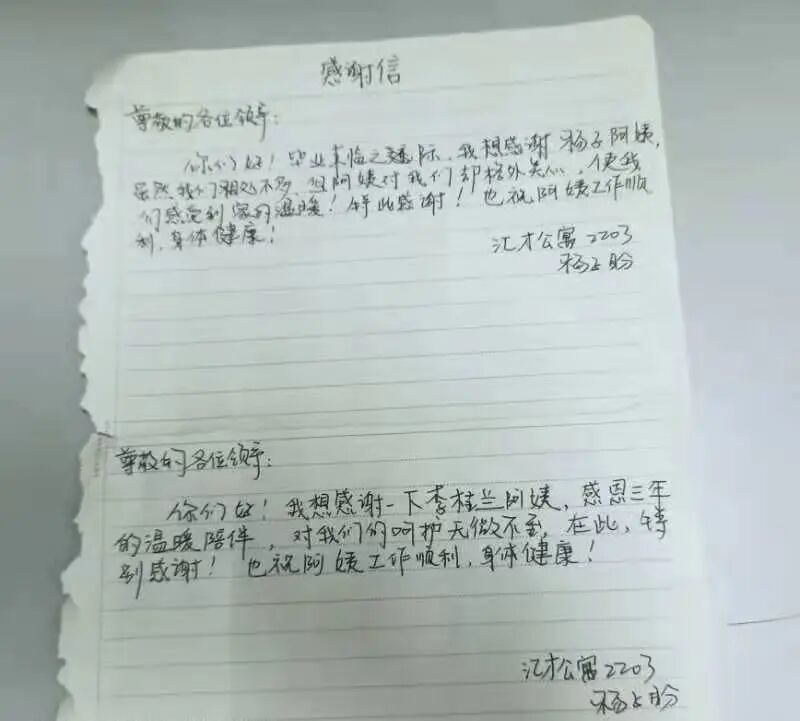 感谢信
尊敬的各位领导:
你们好!毕业来临之际,我想感谢杨子阿姨,
虽然我们相处不多,但阿姨对我们却格外关心,使我
们感受到家的温暖!特此感谢!也祝阿姨工作顺
利,身体健康!
汇才公寓2203
杨子盼
尊敬的各位领导:
你们好!我想感谢一下李桂兰阿姨,感恩三年
的温暖陪伴,对我们的呵护无微不至,在此,特
别感谢!也祝阿姨工作顺利,身体健康!
汇才公寓2203
杨子盼